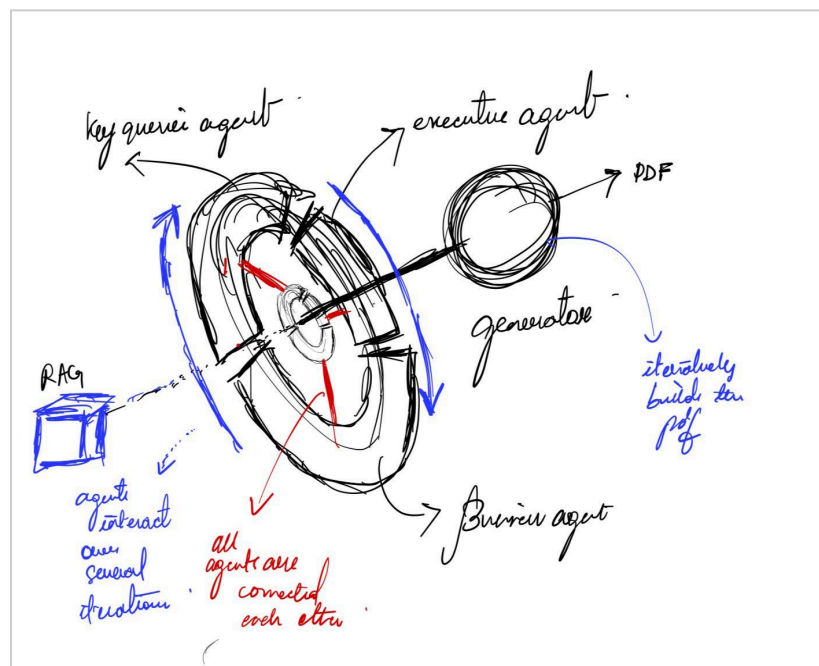 key queries agent
executive agent
PDF
generator
RAG
iteratively
builds the
pdf
Business agent
agents
interact
over
several
iterations
all
agents are
connected
each other